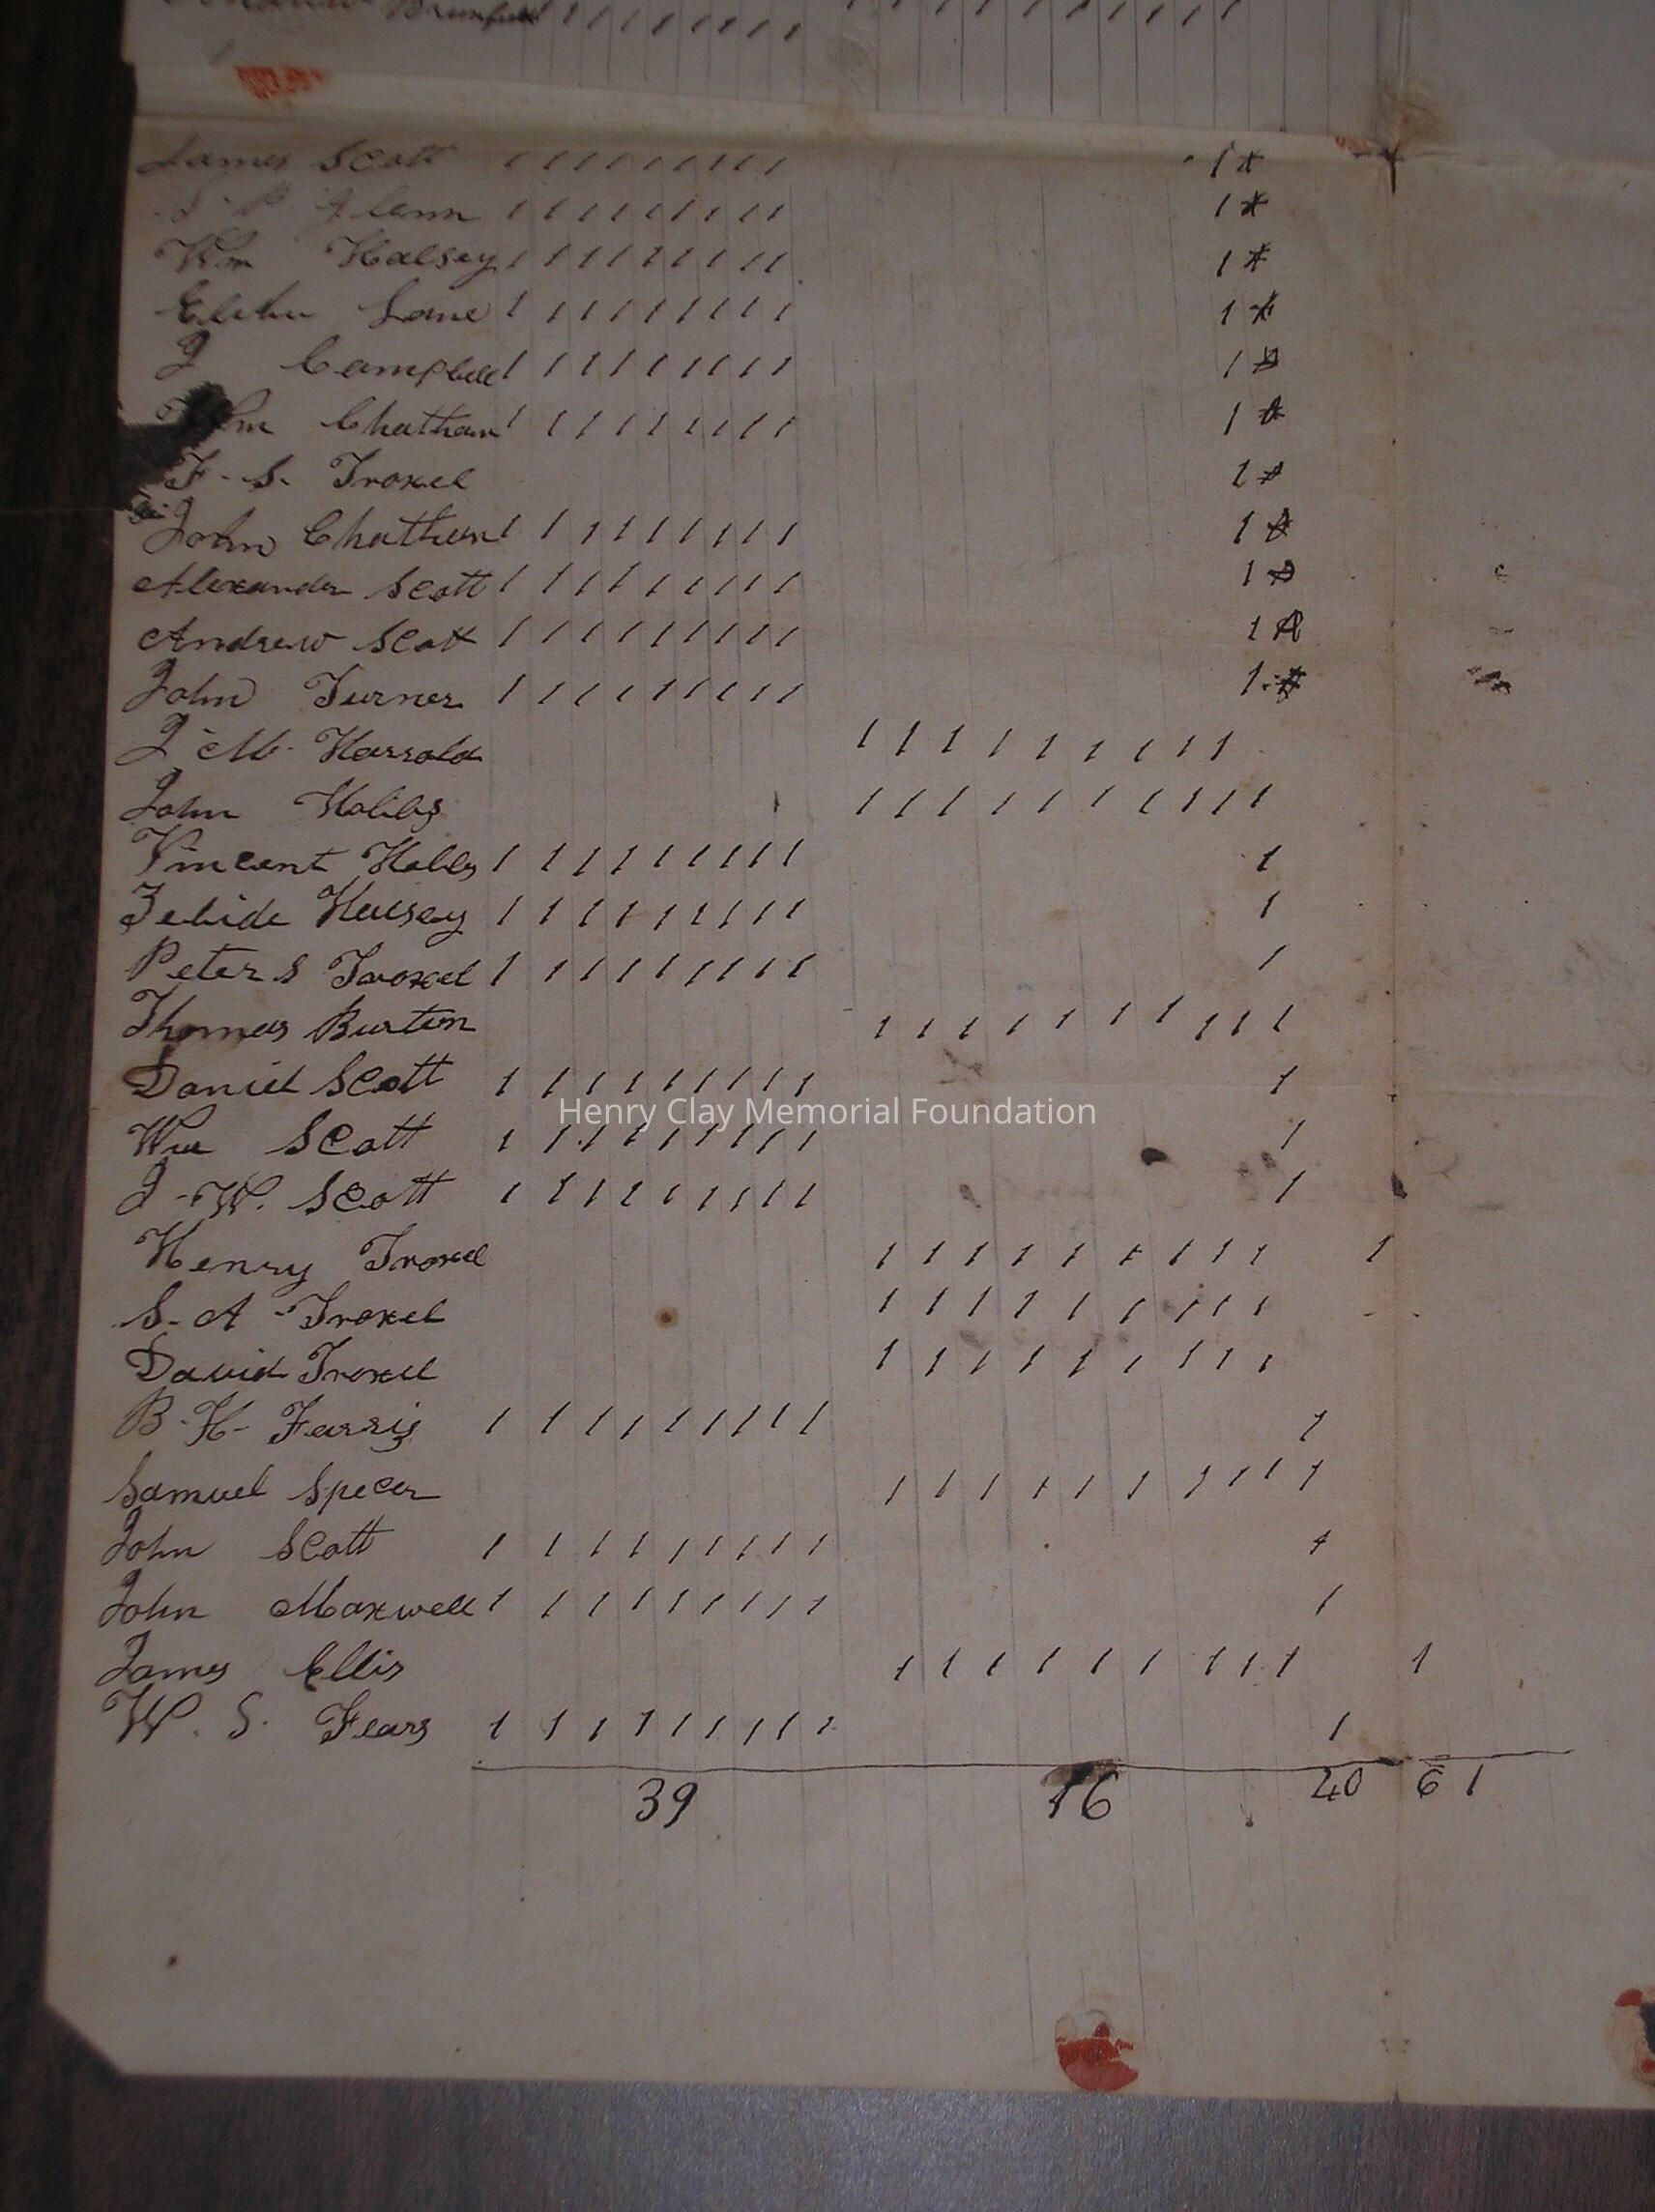 James Scott 1 1 1 1 1 1 1 1 1 1
Glenn 1 1 1 1 1 1 1 1 1 1
Wm Halsey 1 1 1 1 1 1 1 1 1 1
Elihu Lane 1 1 1 1 1 1 1 1 1 1
J Campbell 1 1 1 1 1 1 1 1 1 1
Wm Chatham 1 1 1 1 1 1 1 1 1 1
F. S. Troxel 1
John Chatham 1 1 1 1 1 1 1 1 1 1
Alexander Scott 1 1 1 1 1 1 1 1 1 1
Andrew Scott 1 1 1 1 1 1 1 1 1 1
John Turner 1 1 1 1 1 1 1 1 1 1
J M. Harrold 1 1 1 1 1 1 1 1 1
John Hobbs 1 1 1 1 1 1 1 1 1 1
Vincent Hobbs 1 1 1 1 1 1 1 1 1 1
Zebide Halsey 1 1 1 1 1 1 1 1 1 1
Peter S Troxel 1 1 1 1 1 1 1 1 1 1
Thomas Burton 1 1 1 1 1 1 1 1 1 1
Daniel Scott 1 1 1 1 1 1 1 1 1 1
Henry Clay Memorial Foundation
Wm Scott 1 1 1 1 1 1 1 1 1 1
J. W. Scott 1 1 1 1 1 1 1 1 1 1
Henry Troxel 1 1 1 1 1 1 1 1 1 1
S. A. Troxel 1 1 1 1 1 1 1 1 1
David Troxel 1 1 1 1 1 1 1 1 1
B. H. Farris 1 1 1 1 1 1 1 1 1 1
Samuel Specer 1 1 1 1 1 1 1 1 1 1
John Scott 1 1 1 1 1 1 1 1 1 1
John Maxwell 1 1 1 1 1 1 1 1 1 1
James Ellis 1 1 1 1 1 1 1 1 1 1
W. S. Fears 1 1 1 1 1 1 1 1 1 1
39 16 40 6 1